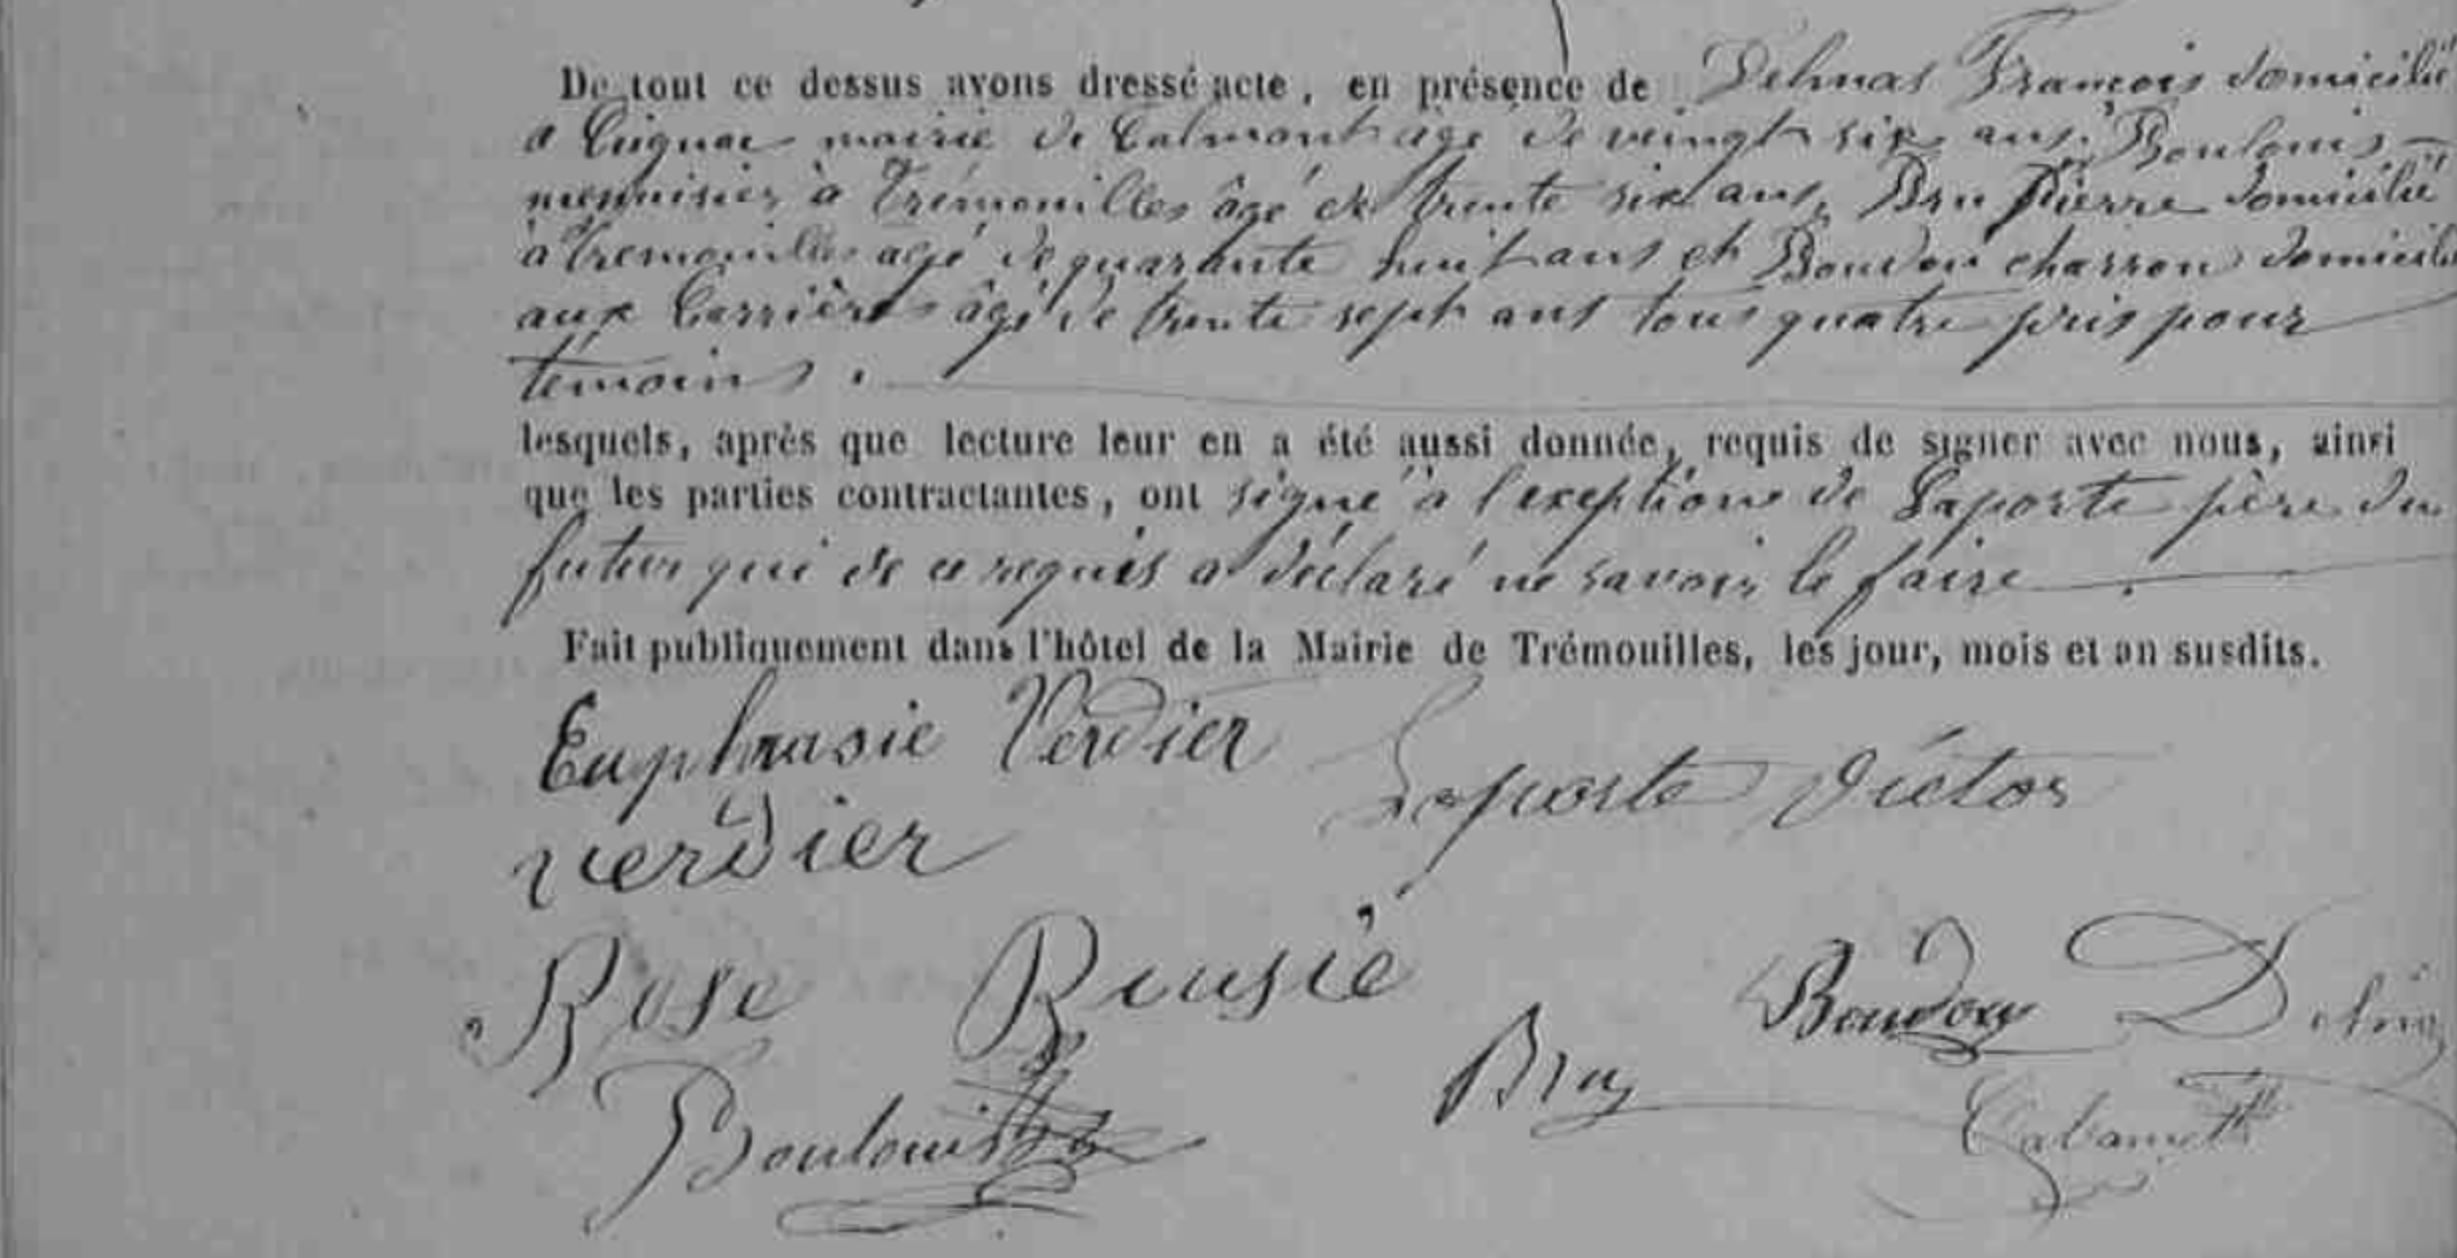 De tout ce dessus avons dressé acte, en présence de Delmas François domicilié
à Ceignac mairie de Calmont age de veingt six ans, Boulouis
menuisier à Trémouilles âgé de trente six ans, Bru Pierre domicilié
à Tremouilles agé de quarante huit ans et Boudou charron domicilié
aux Carrières âgé de trente sept ans tous quatre pris pour
témoins.
lesquels, après que lecture leur en a été aussi donnée, requis de signer avec nous, ainsi
que les parties contractantes, ont signé à l'exeption de Laporte père du
futur qui de ce requis a déclaré ne savoir le faire.
Fait publiquement dans l'hôtel de la Mairie de Trémouilles, les jour, mois et an susdits.
Euphrasie Verdier
Laporte Victor
verdier
Rose
Boudou Delmas
Bru
Boulouis